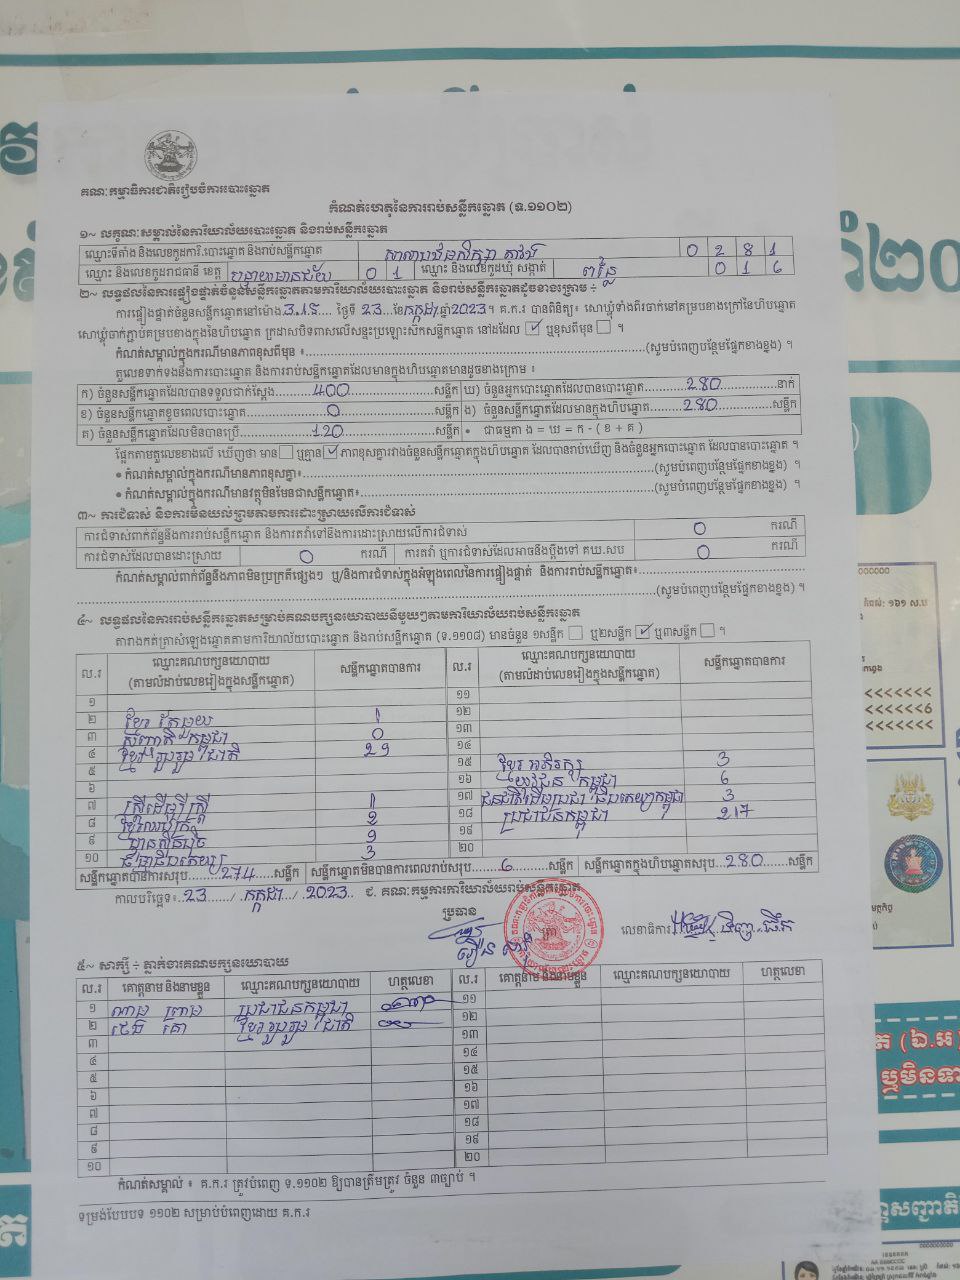 គណៈកម្មាធិការជាតិរៀបចំការបោះឆ្នោត
កំណត់ហេតុនៃការរាប់សន្លឹកឆ្នោត (ទ.១១០២)
១~ លក្ខណៈសម្គាល់នៃការិយាល័យបោះឆ្នោត និងរាប់សន្លឹកឆ្នោត
ឈ្មោះទីតាំង និងលេខកូដការិ.បោះឆ្នោត និងរាប់សន្លឹកឆ្នោត 0 2 8 1
ឈ្មោះ និងលេខកូដរាជធានី ខេត្ត បន្ទាយមានជ័យ 0 1 ឈ្មោះ និងលេខកូដឃុំ សង្កាត់ 0 1 6
២~ លទ្ធផលនៃការផ្ទៀងផ្ទាត់ចំនួនសន្លឹកឆ្នោតតាមការិយាល័យបោះឆ្នោត និងរាប់សន្លឹកឆ្នោតដូចខាងក្រោម ÷
ការផ្ទៀងផ្ទាត់ចំនួនសន្លឹកឆ្នោតនៅម៉ោង 3.15 ថ្ងៃទី 23 ខែ កក្កដា ឆ្នាំ 2023។ គ.ក.រ បានពិនិត្យ៖ សោឃ្លុំទាំងពីរចាក់នៅគម្របខាងក្រៅនៃហិបឆ្នោត
សោឃ្លុំចាក់ភ្ជាប់គម្របខាងក្នុងនៃហិបឆ្នោត ក្រដាសបិទពាសលើសន្ទះប្រឡោះស៊កសន្លឹកឆ្នោត នៅដដែល ឬខុសពីមុន ។
កំណត់សម្គាល់ក្នុងករណីមានភាពខុសពីមុន ៖ (សូមបំពេញបន្ថែមផ្នែកខាងខ្នង) ។
តួលេខទាក់ទងនឹងការបោះឆ្នោត និងការរាប់សន្លឹកឆ្នោតដែលមានក្នុងហិបឆ្នោតមានដូចខាងក្រោម ៖
ក) ចំនួនសន្លឹកឆ្នោតដែលបានទទួលជាក់ស្តែង 400 សន្លឹក ឃ) ចំនួនអ្នកបោះឆ្នោតដែលបានបោះឆ្នោត 280 នាក់
ខ) ចំនួនសន្លឹកឆ្នោតខូចពេលបោះឆ្នោត 0 សន្លឹក ង) ចំនួនសន្លឹកឆ្នោតដែលមានក្នុងហិបឆ្នោត 280 សន្លឹក
គ) ចំនួនសន្លឹកឆ្នោតដែលមិនបានប្រើ 120 សន្លឹក • ជាធម្មតា ង = ឃ = ក - ( ខ + គ )
ផ្អែកតាមតួលេខខាងលើ ឃើញថា មាន ឬគ្មាន ភាពខុសគ្នារវាងចំនួនសន្លឹកឆ្នោតក្នុងហិបឆ្នោត ដែលបានរាប់ឃើញ និងចំនួនអ្នកបោះឆ្នោត ដែលបានបោះឆ្នោត ។
• កំណត់សម្គាល់ក្នុងករណីមានភាពខុសគ្នា៖ (សូមបំពេញបន្ថែមផ្នែកខាងខ្នង) ។
• កំណត់សម្គាល់ក្នុងករណីមានវត្ថុមិនមែនជាសន្លឹកឆ្នោត៖ (សូមបំពេញបន្ថែមផ្នែកខាងខ្នង) ។
៣~ ការជំទាស់ និងការមិនយល់ព្រមតាមការដោះស្រាយលើការជំទាស់
ការជំទាស់ពាក់ព័ន្ធនឹងការរាប់សន្លឹកឆ្នោត និងការតវ៉ាទៅនឹងការដោះស្រាយលើការជំទាស់ 0 ករណី
ការជំទាស់ដែលបានដោះស្រាយ 0 ករណី ការតវ៉ា ឬការជំទាស់ដែលអាចនឹងប្តឹងទៅ គឃ.សប 0 ករណី
កំណត់សម្គាល់ពាក់ព័ន្ធនឹងភាពមិនប្រក្រតីផ្សេងៗ ឬ/និងការជំទាស់ក្នុងអំឡុងពេលនៃការផ្ទៀងផ្ទាត់ និងការរាប់សន្លឹកឆ្នោត៖
(សូមបំពេញបន្ថែមផ្នែកខាងខ្នង) ។
៤~ លទ្ធផលនៃការរាប់សន្លឹកឆ្នោតសម្រាប់គណបក្សនយោបាយនីមួយៗតាមការិយាល័យរាប់សន្លឹកឆ្នោត
តារាងកត់ត្រាសំឡេងឆ្នោតតាមការិយាល័យបោះឆ្នោត និងរាប់សន្លឹកឆ្នោត (ទ.១១០៨) មានចំនួន ១សន្លឹក ឬ២សន្លឹក ឬ៣សន្លឹក ។
ល.រ ឈ្មោះគណបក្សនយោបាយ (តាមលំដាប់លេខរៀងក្នុងសន្លឹកឆ្នោត) សន្លឹកឆ្នោតបានការ ល.រ ឈ្មោះគណបក្សនយោបាយ (តាមលំដាប់លេខរៀងក្នុងសន្លឹកឆ្នោត) សន្លឹកឆ្នោតបានការ
១ ១១
២ ខ្មែរ តែមួយ ១ ១២
៣ សញ្ជាតិ កម្ពុជា 0 ១៣
៤ ខ្មែររួបរួមជាតិ ១៤
៥ ១៥ ខ្មែរ អភិរក្ស 3
៦ ១៦ យុវជន កម្ពុជា 6
៧ ស្ត្រីដើម្បីស្ត្រី ១ ១៧ ជនជាតិដើមប្រជាធិបតេយ្យកម្ពុជា 3
៨ ១៨ ប្រជាជនកម្ពុជា 217
៩ ១៩
១០ 3 ២០
សន្លឹកឆ្នោតបានការសរុប 274 សន្លឹក សន្លឹកឆ្នោតមិនបានការពេលរាប់សរុប 6 សន្លឹក សន្លឹកឆ្នោតក្នុងហិបឆ្នោតសរុប 280 សន្លឹក
កាលបរិច្ឆេទ៖ 23 / កក្កដា / 2023 ជ. គណៈកម្មការការិយាល័យរាប់សន្លឹកឆ្នោត
ប្រធាន
លេខាធិការ
៥~ សាក្សី ÷ ភ្នាក់ងារគណបក្សនយោបាយ
ល.រ គោត្តនាម និងនាមខ្លួន ឈ្មោះគណបក្សនយោបាយ ហត្ថលេខា ល.រ គោត្តនាម និងនាមខ្លួន ឈ្មោះគណបក្សនយោបាយ ហត្ថលេខា
១ ប្រជាជនកម្ពុជា ១១
២ ខ្មែររួបរួមជាតិ ១២
៣ ១៣
៤ ១៤
៥ ១៥
៦ ១៦
៧ ១៧
៨ ១៨
៩ ១៩
១០ ២០
កំណត់សម្គាល់ ៖ គ.ក.រ ត្រូវបំពេញ ទ.១១០២ ឱ្យបានត្រឹមត្រូវ ចំនួន ៣ច្បាប់ ។
ទម្រង់បែបបទ ១១០២ សម្រាប់បំពេញដោយ គ.ក.រ